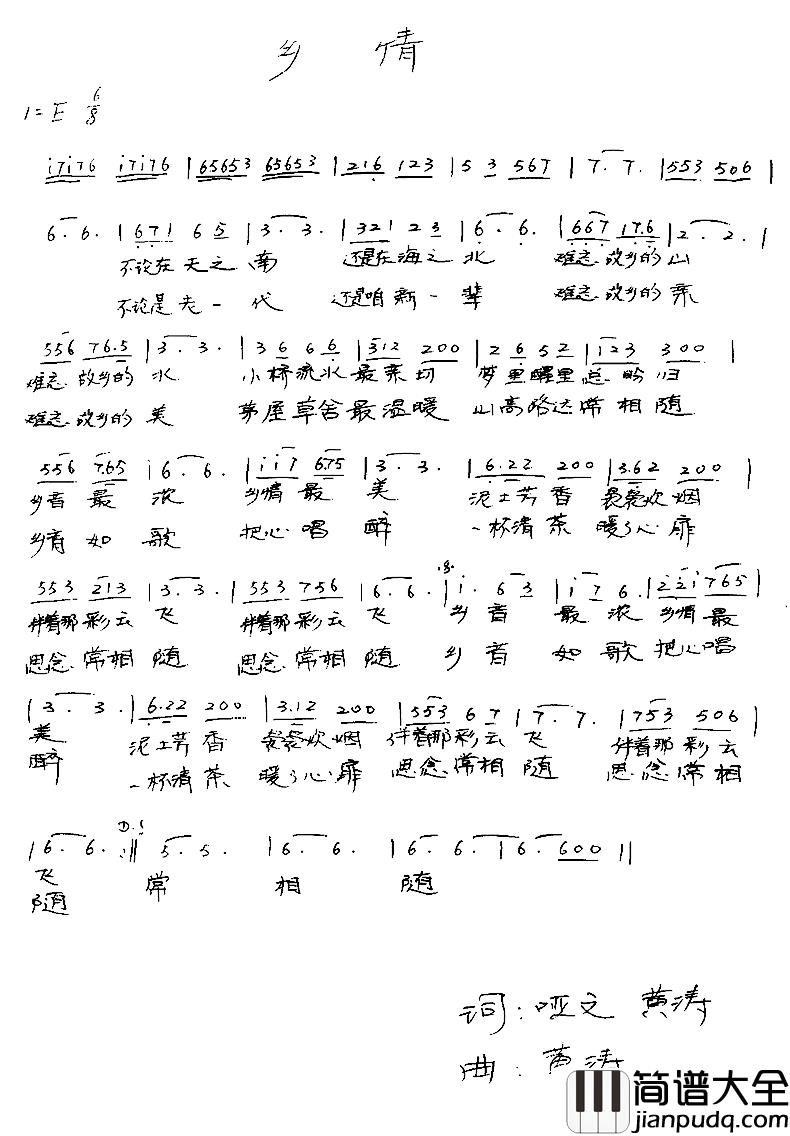 乡 情
1=E 6/8
i7i76 i7i76 | 65653 65653 | 216 123 | 5 3 567 | 7. 7. | 553 506 |
6. 6. | 671 65 | 3. 3. | 321 23 | 6. 6. | 667 17.6 | 2. 2. |
不论在天之南 还是在海之北 难忘故乡的山
不论是老一代 还是咱新一辈 难忘故乡的亲
556 76.5 | 3. 3. | 3 6 6 6 | 312 200 | 2 6 5 2 | 123 300 |
难忘故乡的水 小桥流水最亲切 梦里醒里总盼归
难忘故乡的美 茅屋草舍最温暖 山高路达常相随
556 7.65 | 6. 6. | ii7 6.75 | 3. 3. | 6.22 200 | 3.62 200 |
乡音最浓 乡情最美 泥土芳香 袅袅炊烟
乡音如歌 把心唱醉 一杯清茶 暖了心扉
553 213 | 3. 3. | 553 756 | 6. 6. | i. 6 3 | i 7 6. | 22i 765 |
伴着那彩云飞 伴着那彩云飞 乡音最浓 乡情最
思念常相随 思念常相随 乡音如歌 把心唱
| 3. 3. | 6.22 200 | 3.12 200 | 553 6 7 | 7. 7. | 753 506 |
美 泥土芳香 袅袅炊烟 伴着那彩云飞 伴着那彩云
醉 一杯清茶 暖了心扉 思念常相随 思念常相
| 6. 6. :|| 5. 5. | 6. 6. | 6. 6. | 6. 600 ||
D.S
飞 常 相 随
随
词：哑文 黄涛
曲：黄涛
简谱大全
jianpudq.com